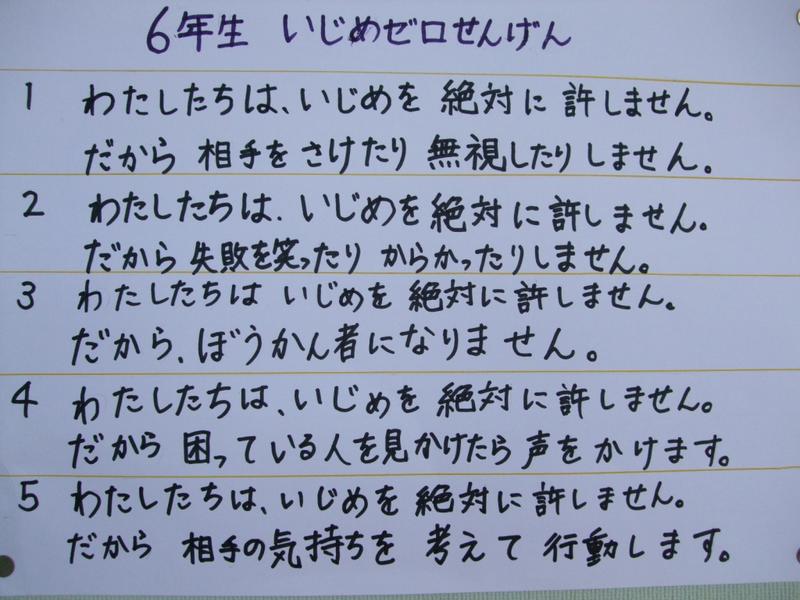 6年生 いじめゼロせんげん
1 わたしたちは、いじめを 絶対に 許しません。
だから 相手を さけたり 無視したり しません。
2 わたしたちは、いじめを 絶対に 許しません。
だから 失敗を笑ったり からかったりしません。
3 わたしたちは いじめを 絶対に 許しません。
だから、ぼうかん者になりません。
4 わたしたちは、いじめを 絶対に 許しません。
だから 困っている人を見かけたら 声を かけます。
5 わたしたちは、いじめを 絶対に 許しません。
だから 相手の気持ちを 考えて 行動します。